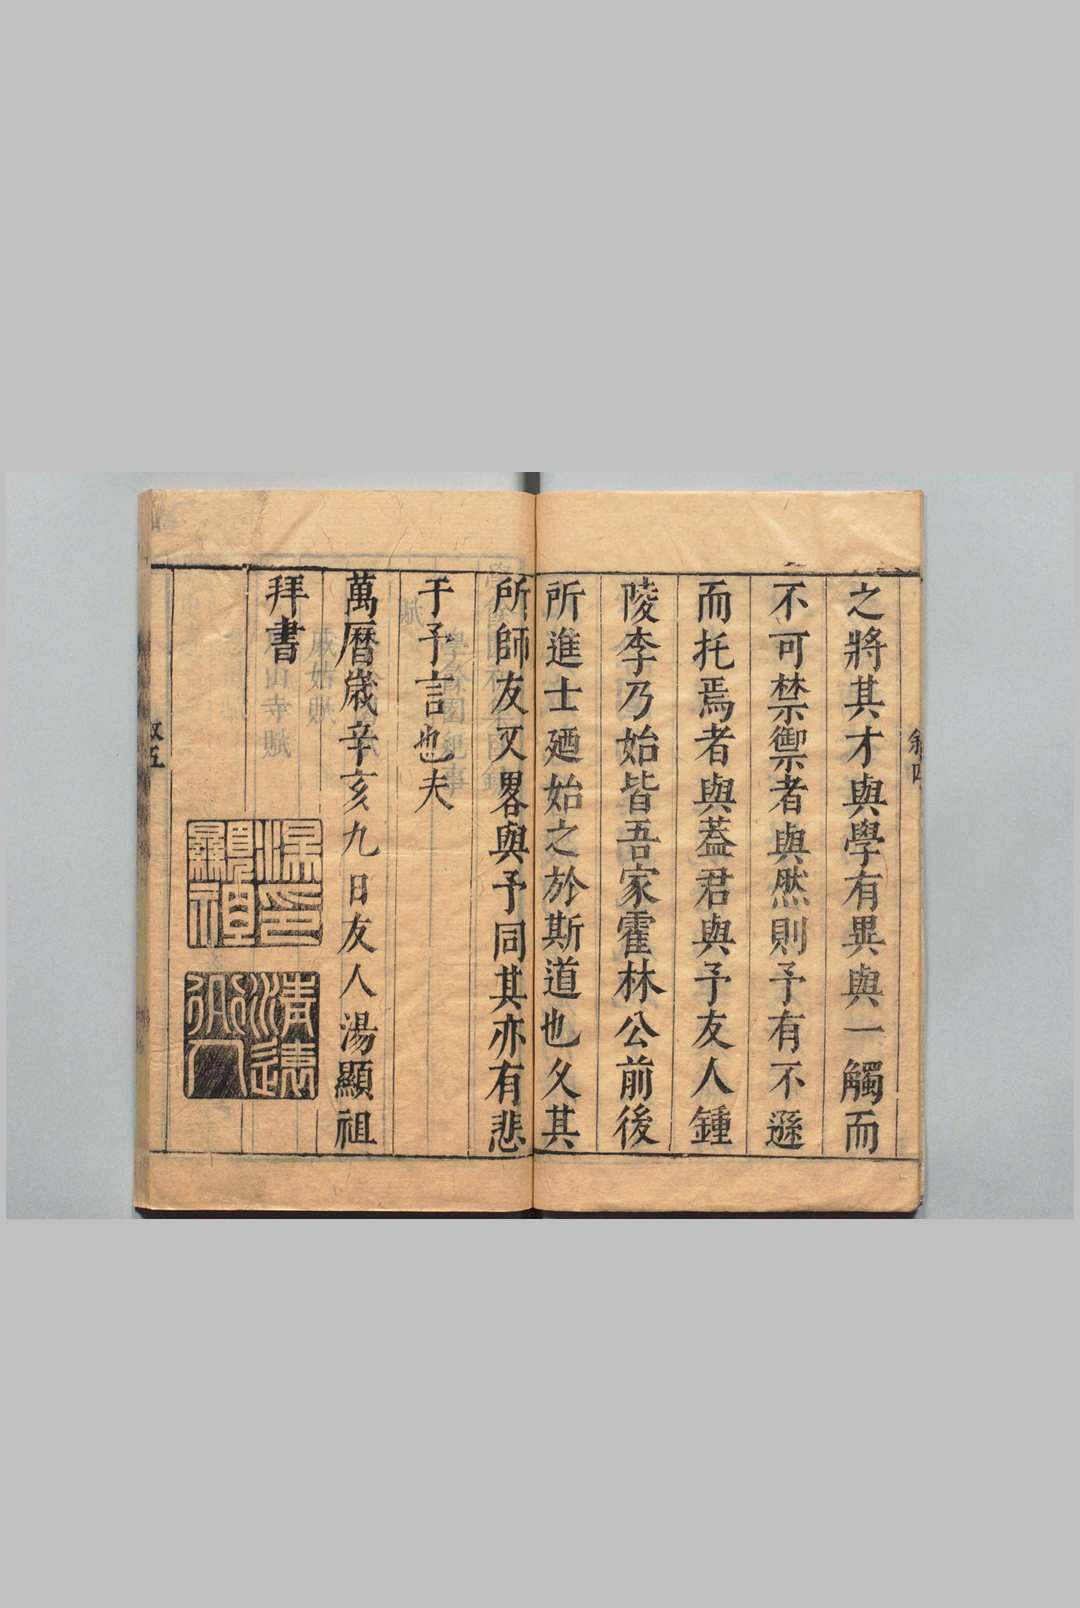 之將其才與學有異與一觸而
不可禁禦者與然則予有不遜
而托焉者與蓋君與予友人鍾
陵李乃始皆吾家霍林公前後
所進士廼始之於斯道也久其
所師友又畧與予同其亦有悲
于予言也夫
萬曆歲辛亥九日友人湯顯祖
拜書
湯顯祖印
清遠道人
叙四
叙五